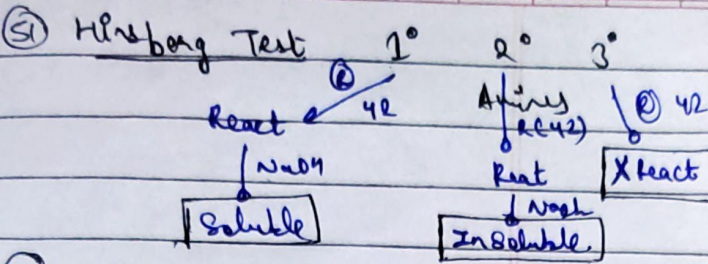 51 Hinsberg Test 1° 2° 3°
R 42 Amines R(42) R 42
React React X React
NaOH NaOH
Soluble InSoluble